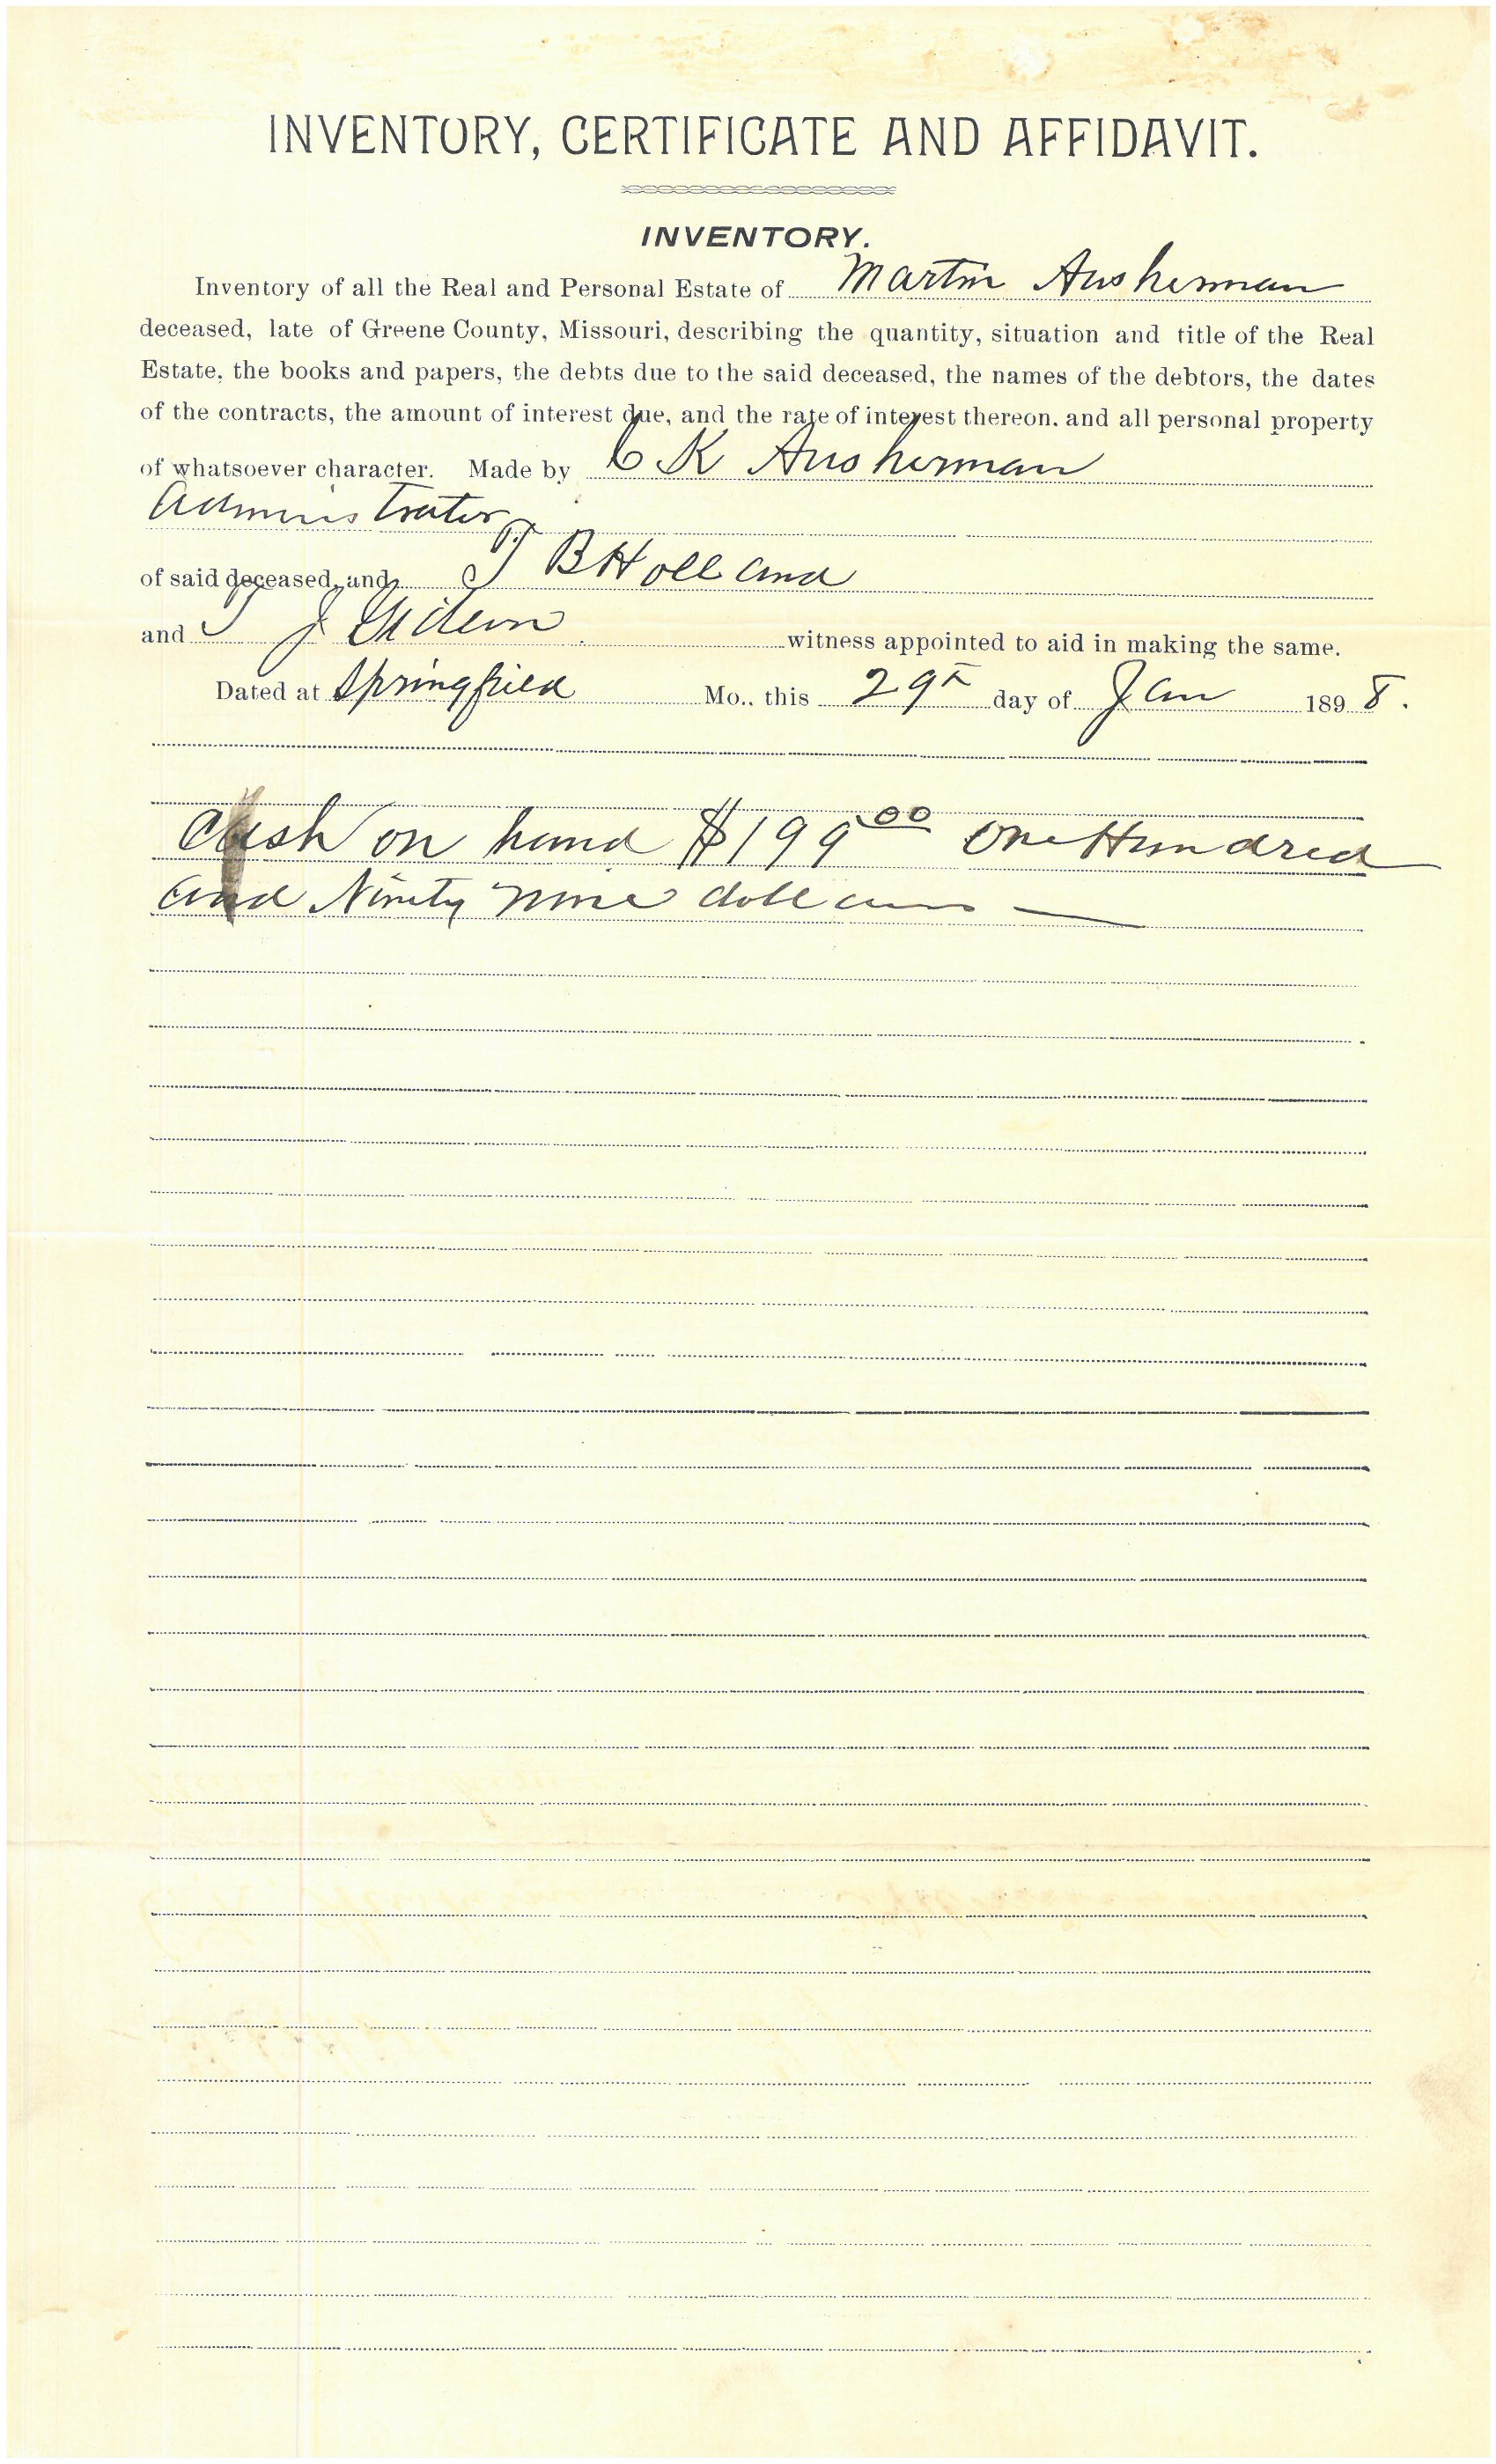 INVENTORY, CERTIFICATE AND AFFIDAVIT.
INVENTORY.
Inventory of all the Real and Personal Estate of Martin Ausherman
deceased, late of Greene County, Missouri, describing the quantity, situation and title of the Real
Estate, the books and papers, the debts due to the said deceased, the names of the debtors, the dates
of the contracts, the amount of interest due, and the rate of interest thereon, and all personal property
of whatsoever character. Made by C K Ausherman
Administrator
of said deceased, and T B Holland
and T J Gideon witness appointed to aid in making the same.
Dated at Springfield Mo., this 29th day of Jan 1898.
Cash on hand $199 00 One Hundred
and Ninety nine dollars —